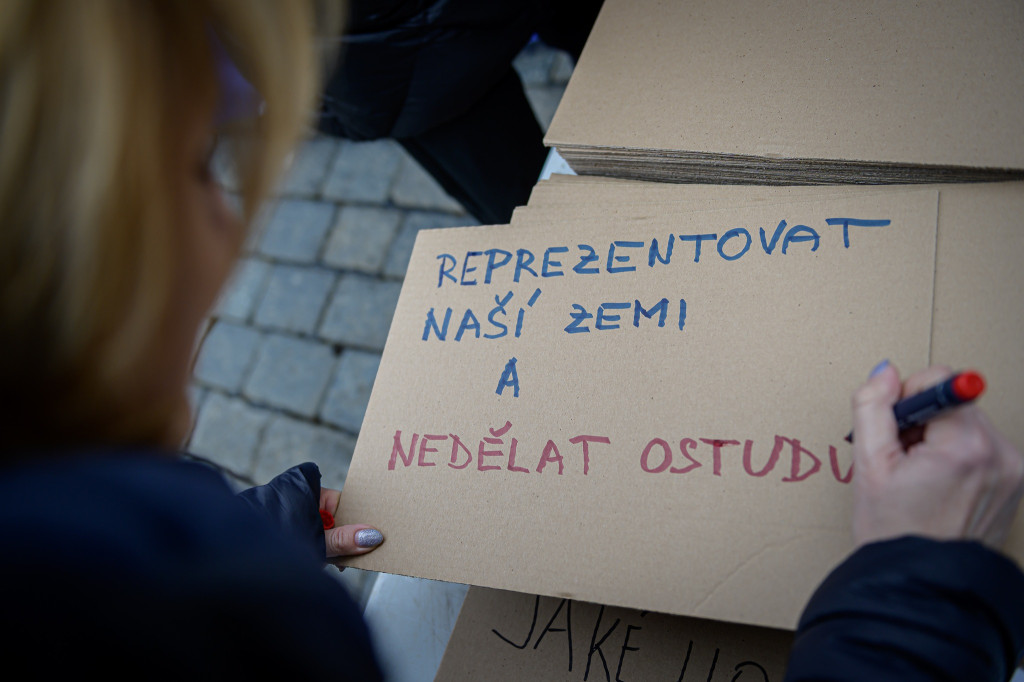 REPREZENTOVAT
NAŠÍ ZEMI
A
NEDĚLAT OSTUDU
JAKÉ